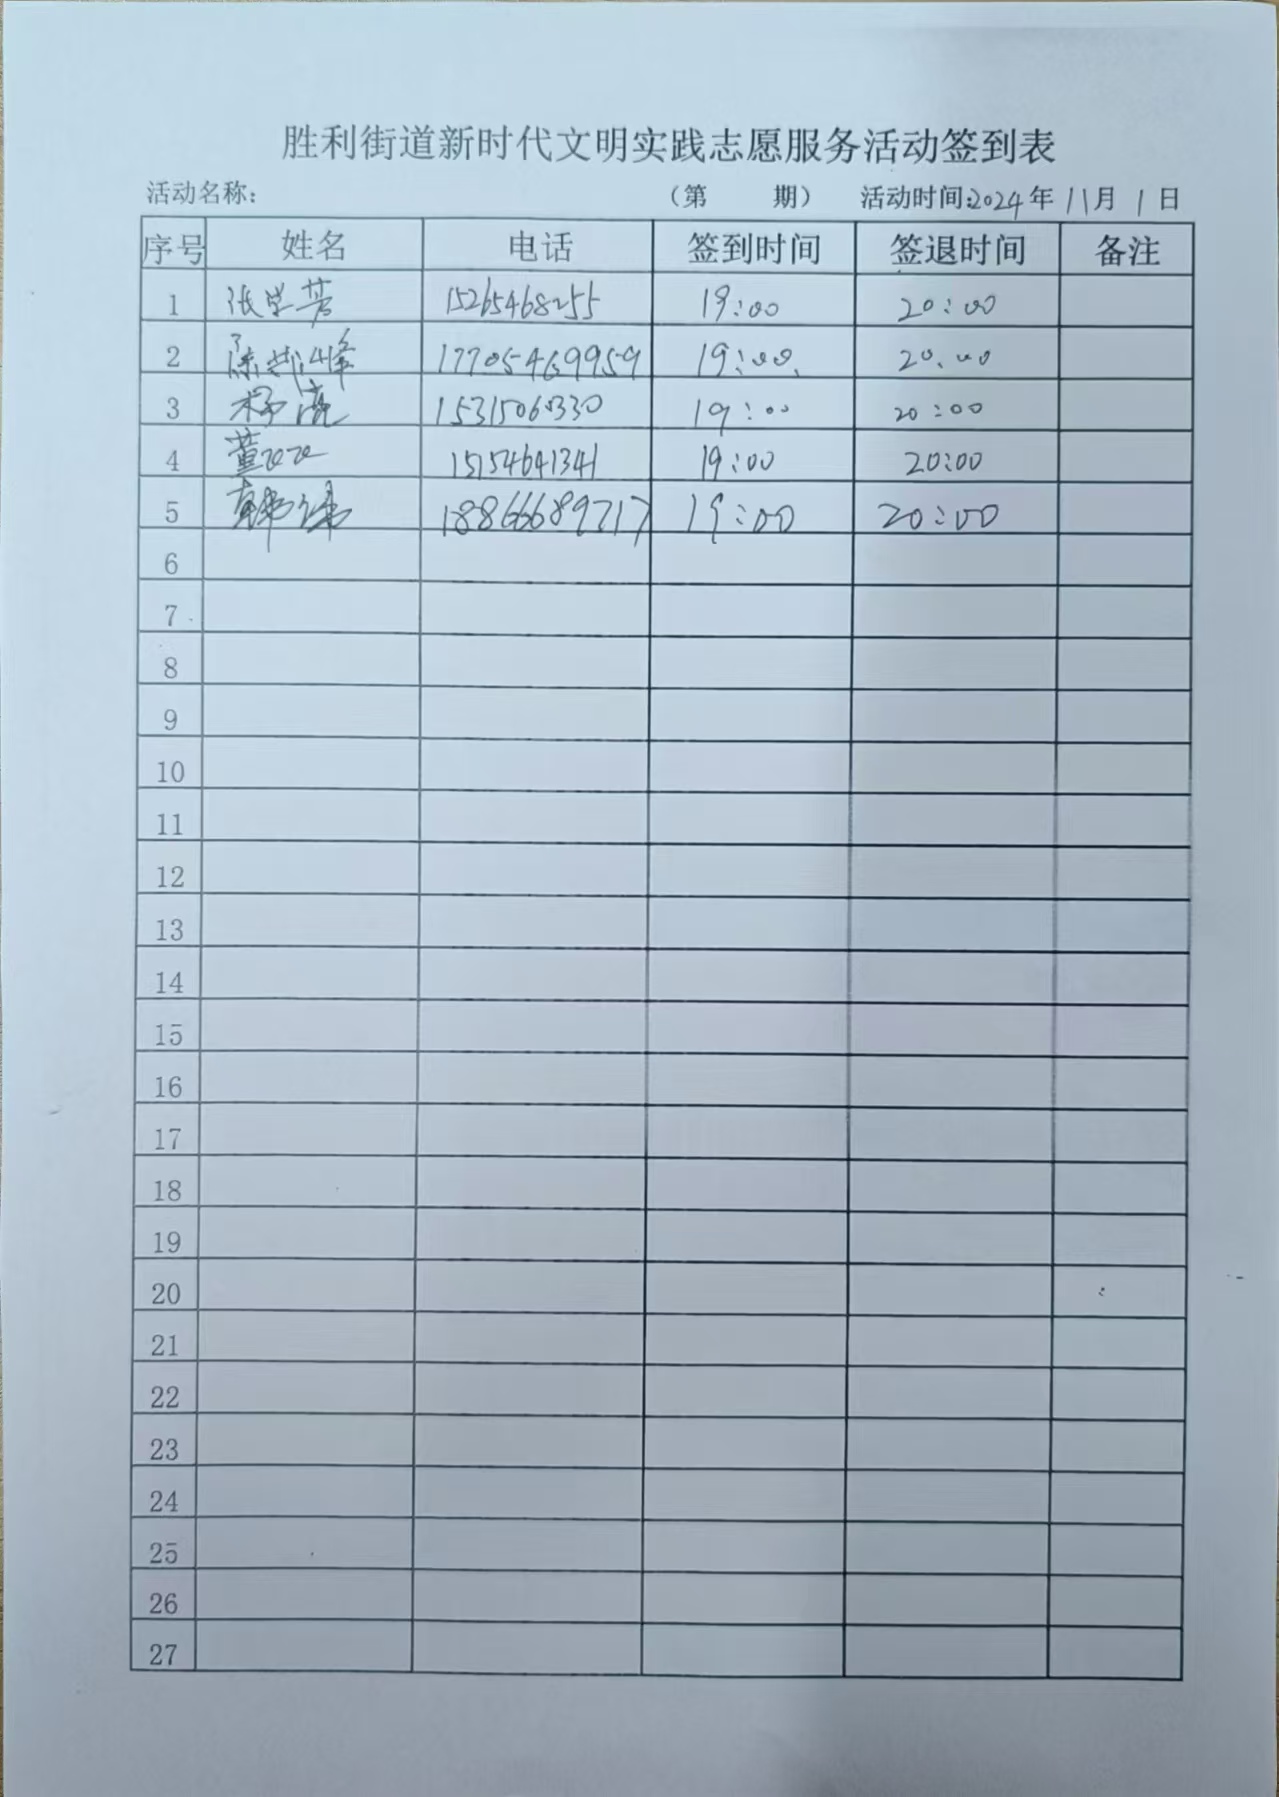 胜利街道新时代文明实践志愿服务活动签到表
活动名称: （第 期） 活动时间:2024年11月1日
序号 姓名 电话 签到时间 签退时间 备注
1 张学芳 15265468255 19:00 20:00
2 陈 峰 17705469959 19:00 20:00
3 杨亮 15315060330 19:00 20:00
4 董 15154641341 19:00 20:00
5 韩伟 18866689717 19:00 20:00
6
7
8
9
10
11
12
13
14
15
16
17
18
19
20
21
22
23
24
25
26
27